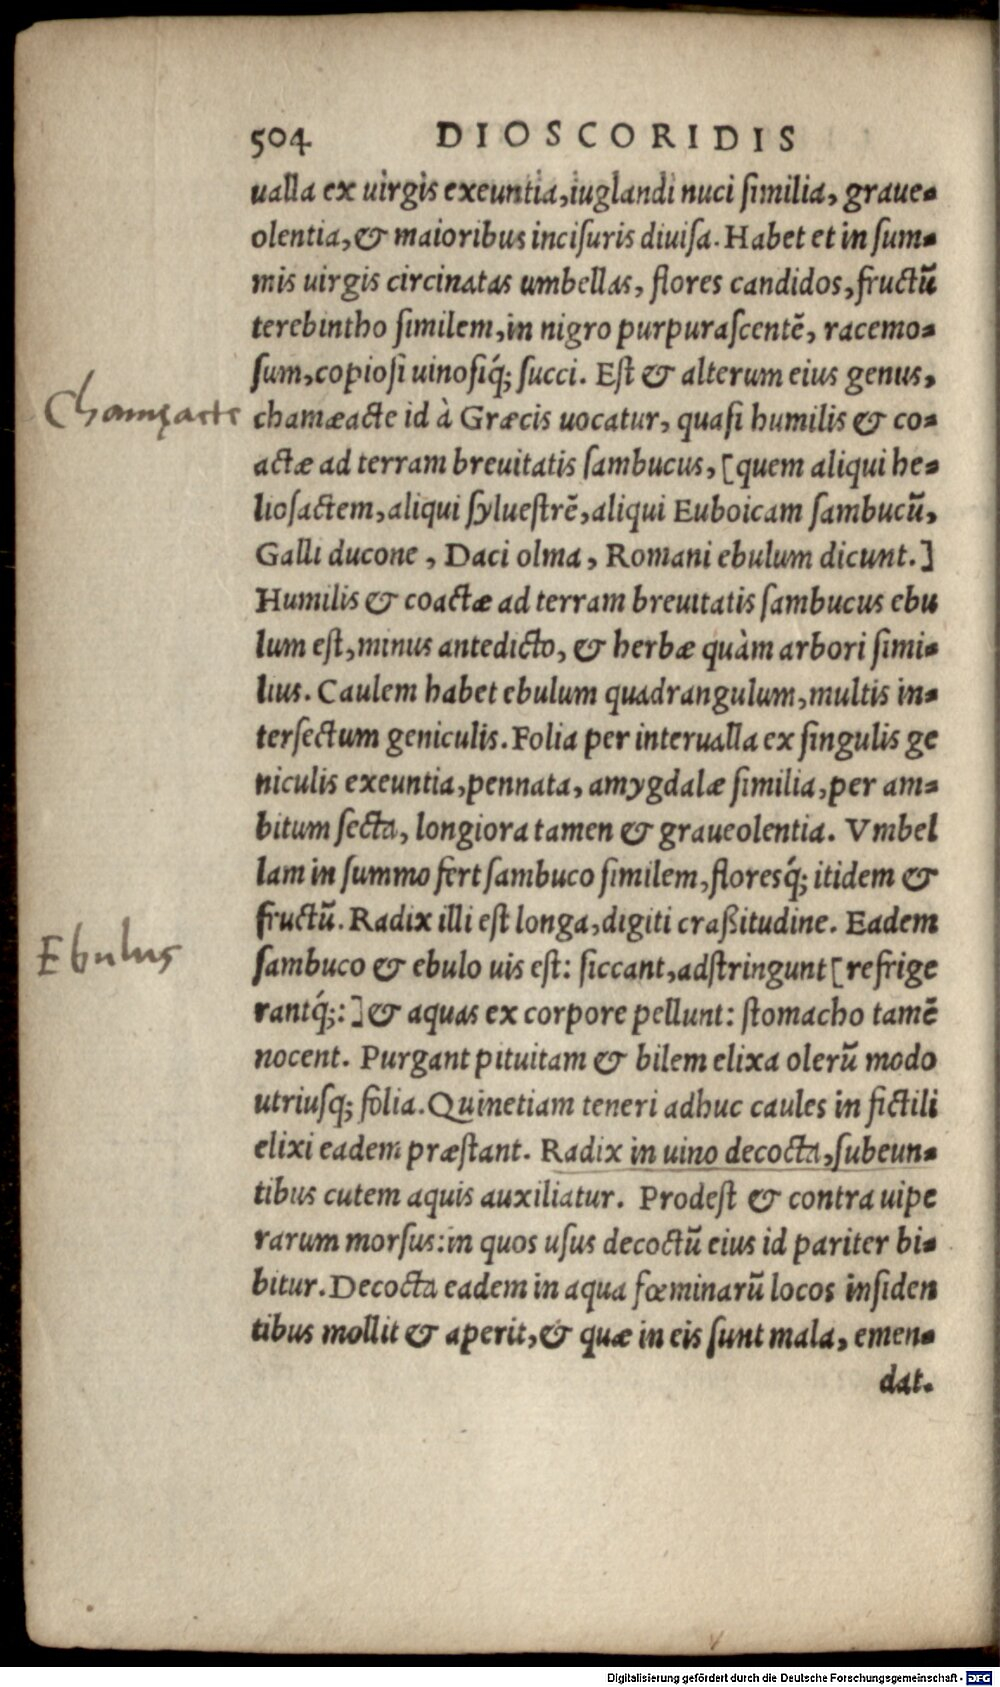 504 DIOSCORIDIS
ualla ex uirgis exeuntia, iuglandi nuci ſimilia, graue-
olentia, & maioribus inciſuris diuiſa. Habet et in ſum-
mis uirgis circinatas umbellas, flores candidos, fructū
terebintho ſimilem, in nigro purpuraſcentē, racemo-
ſum, copioſi uinoſiq́; ſucci. Eſt & alterum eius genus,
Chamęacte
chamæacte id à Græcis uocatur, quaſi humilis & co-
actæ ad terram breuitatis ſambucus, [quem aliqui he-
lioſactem, aliqui ſylueſtrē, aliqui Euboicam ſambucū,
Galli ducone, Daci olma, Romani ebulum dicunt.]
Humilis & coactæ ad terram breuitatis ſambucus ebu
lum eſt, minus antedicto, & herbæ quàm arbori ſimi-
lius. Caulem habet ebulum quadrangulum, multis in-
terſectum geniculis. Folia per interualla ex ſingulis ge
niculis exeuntia, pennata, amygdalæ ſimilia, per am-
bitum ſecta, longiora tamen & graueolentia. Vmbel
lam in ſummo fert ſambuco ſimilem, floresq́; itidem &
fructū. Radix illi eſt longa, digiti craßitudine. Eadem
Ebulus
ſambuco & ebulo uis eſt: ſiccant, adſtringunt [refrige
rantq́;:] & aquas ex corpore pellunt: ſtomacho tamē
nocent. Purgant pituitam & bilem elixa olerū modo
utriuſq; folia. Quinetiam teneri adhuc caules in fictili
elixi eadem præſtant. Radix in uino decocta, ſubeun-
tibus cutem aquis auxiliatur. Prodeſt & contra uipe
rarum morſus: in quos uſus decoctū eius id pariter bi-
bitur. Decocta eadem in aqua fœminarū locos inſiden
tibus mollit & aperit, & quæ in eis ſunt mala, emen-
dat.
Digitalisierung gefördert durch die Deutsche Forschungsgemeinschaft - DFG